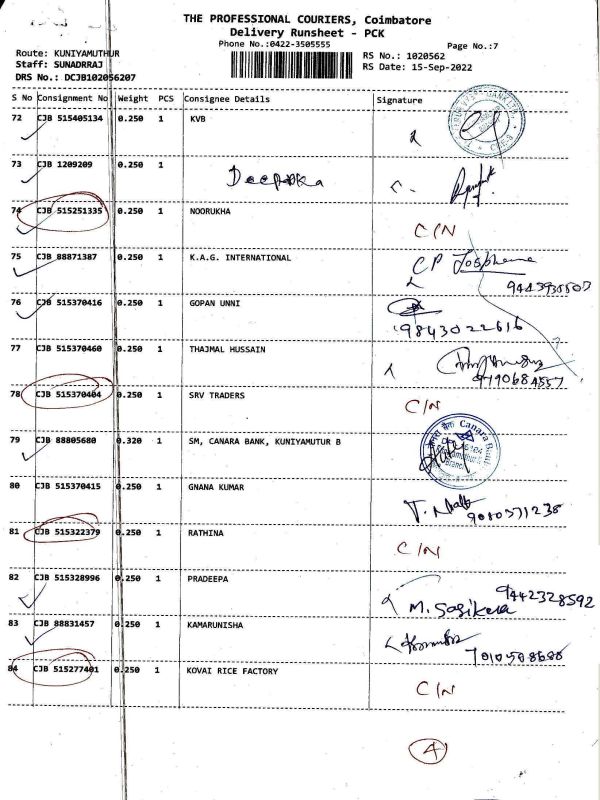 THE PROFESSIONAL COURIERS, Coimbatore
Delivery Runsheet - PCK
Phone No.:0422-3505555
Page No.:7
Route: KUNIYAMUTHUR
Staff: SUNADRRAJ
DRS No.: DCJB102056207
RS No.: 1020562
RS Date: 15-Sep-2022
S No Consignment No Weight PCS Consignee Details Signature
72 CJB 515405134 0.250 1 KVB
73 CJB 1209209 0.250 1 Deepika
74 CJB 515251335 0.250 1 NOORUKHA C/N
75 CJB 88871387 0.250 1 K.A.G. INTERNATIONAL CP Josphene
76 CJB 515370416 0.250 1 GOPAN UNNI
9843022616
77 CJB 515370460 0.250 1 THAJMAL HUSSAIN
78 CJB 515370404 0.250 1 SRV TRADERS C/N
79 CJB 88805680 0.320 1 SM, CANARA BANK, KUNIYAMUTUR B Canara Bank
80 CJB 515370415 0.250 1 GNANA KUMAR
81 CJB 515322379 0.250 1 RATHINA C/N
82 CJB 515328996 0.250 1 PRADEEPA 9442328592
M. Sasikala
83 CJB 88831457 0.250 1 KAMARUNISHA
84 CJB 515277401 0.250 1 KOVAI RICE FACTORY C/N
4